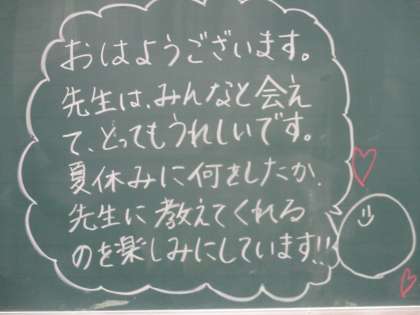 おはようございます。
先生は、みんなと会え
て、とってもうれしいです。
夏休みに何をしたか、
先生に教えてくれる
のを楽しみにしています!!